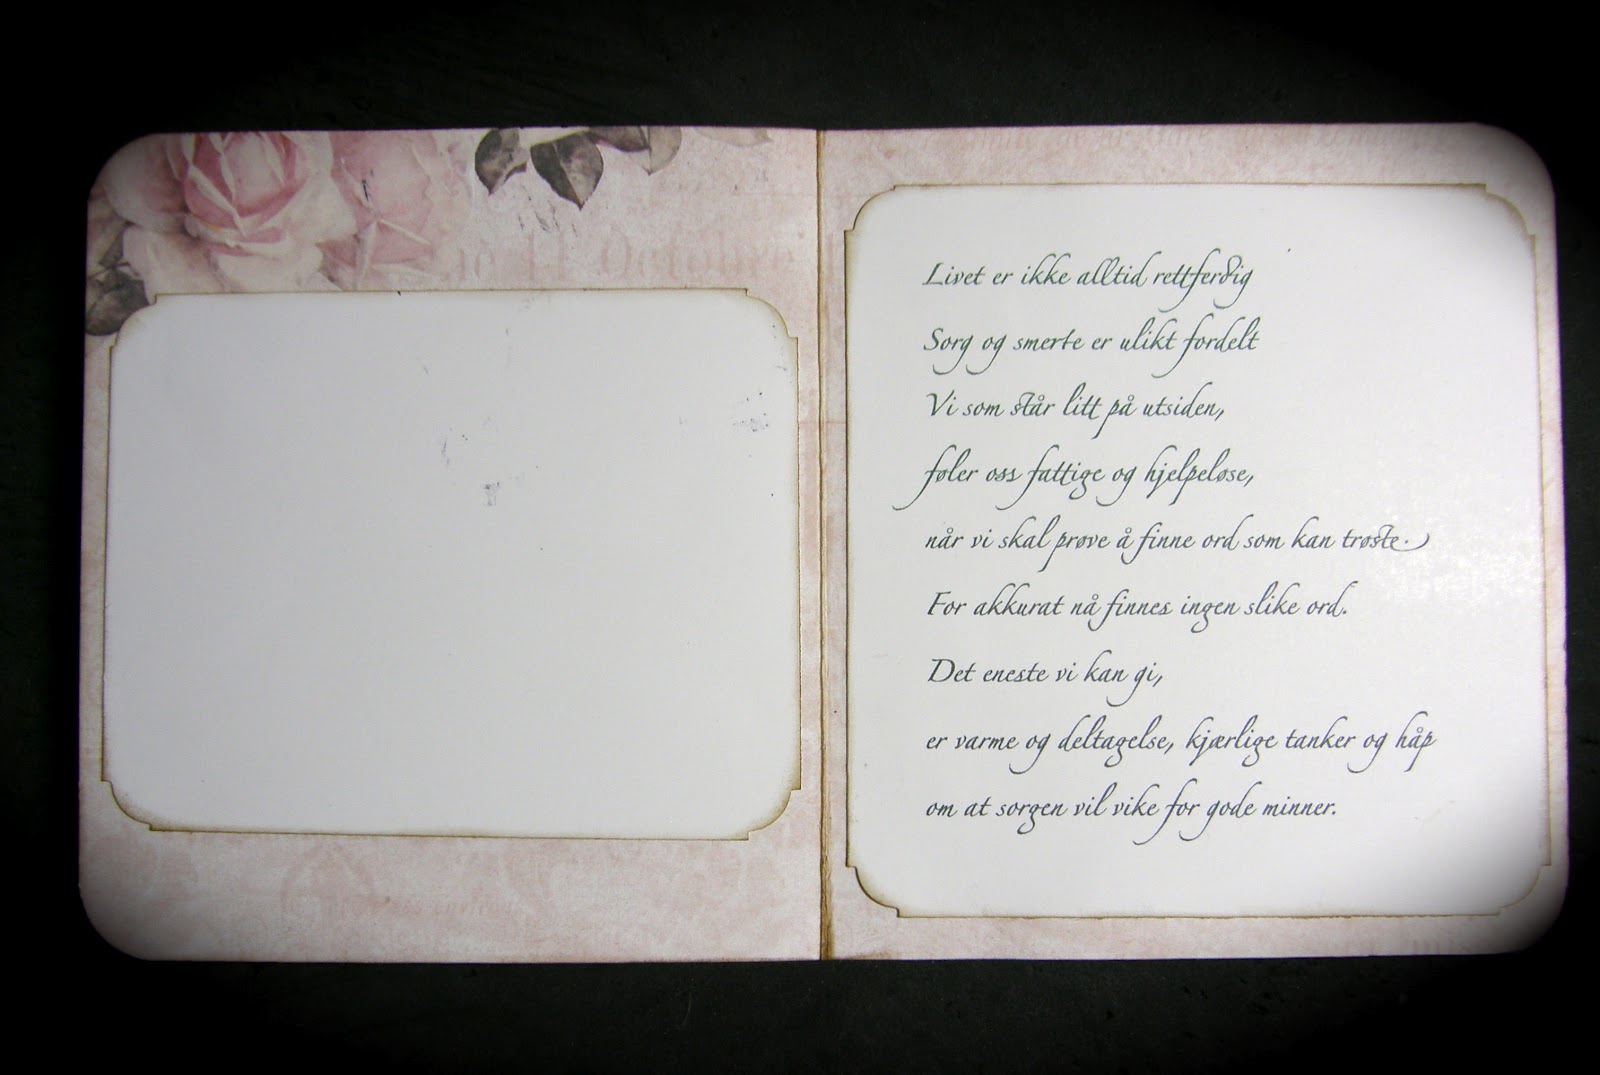 Livet er ikke alltid rettferdig
Sorg og smerte er ulikt fordelt
Vi som står litt på utsiden,
føler oss fattige og hjelpeløse,
når vi skal prøve å finne ord som kan trøste.
For akkurat nå finnes ingen slike ord.
Det eneste vi kan gi,
er varme og deltagelse, kjærlige tanker og håp
om at sorgen vil vike for gode minner.